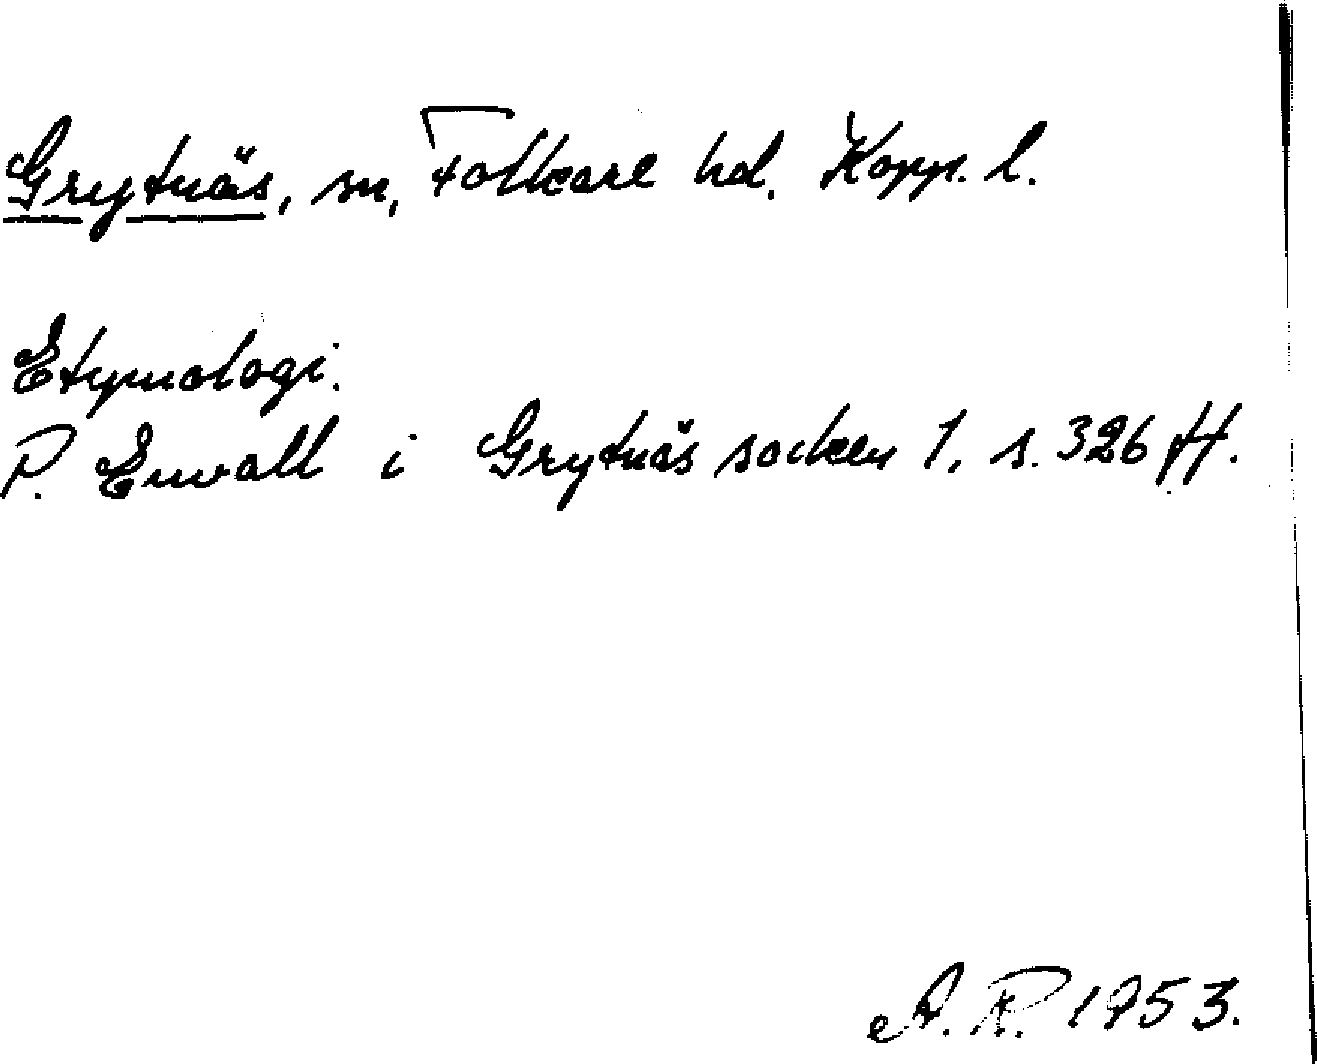 Grytnäs, sn, Folkare hd. Kopp. l.
Etymologi.
P. Envall i Grytnäs socken 1. s. 326 ff.
A. R. 1953.